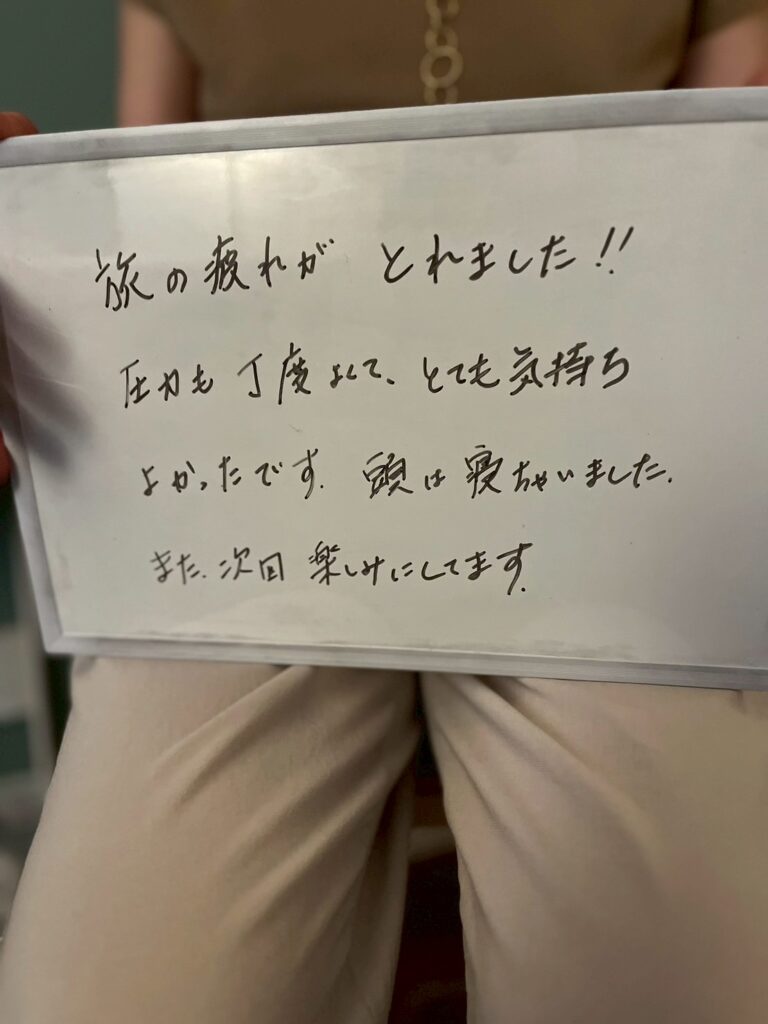 旅の疲れが とれました!!
圧力も丁度よくて、とても気持ち
よかったです。頭は寝ちゃいました。
また、次回 楽しみにしてます。